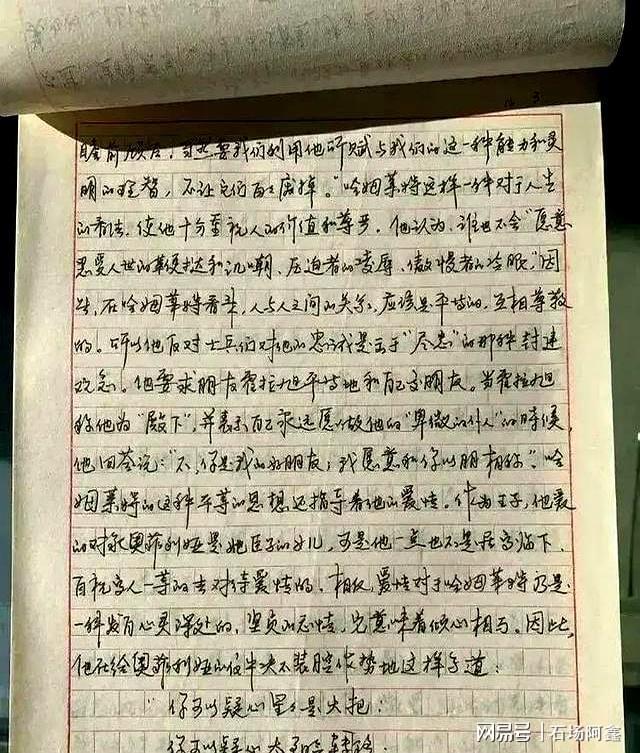 瞻前顾后；当然要我们利用他所赋与我们的这一种能力和灵
明的理智，不让它们白白废掉。”哈姆莱特这样一种对于人生
的看法，使他十分重视人的价值和尊严。他认为，谁也不会“愿意
忍受人世的鞭挞和讥嘲、压迫者的凌辱、傲慢者的冷眼，”因
此，在哈姆莱特看来，人与人之间的关系，应该是平等的，互相尊敬
的。所以他反对士兵们对他的忠诚是出于“尽忠”的那种封建
观念。他要求朋友霍拉旭平等地和自己交朋友。当霍拉旭
称他为“殿下”，并表示自己永远愿以做他的“卑微的仆人”的时候，
他回答说：“不，你是我的好朋友；我愿意和你以朋相称”。哈
姆莱特的这种平等的思想还指导着他的爱情。作为王子，他爱
的对象奥菲利娅是他臣子的女儿，可是他一点也不是居高临下，
自视高人一等的去对待爱情的。相反，爱情对于哈姆莱特乃是
一种发自心灵深处的，坚贞的感情，它意味着倾心相与。因此，
他在给奥菲利娅的信中决不装腔作势地这样写道：
“你可以疑心星星是火把；
你可以疑心太阳会转移；
网易号 | 石场阿鑫